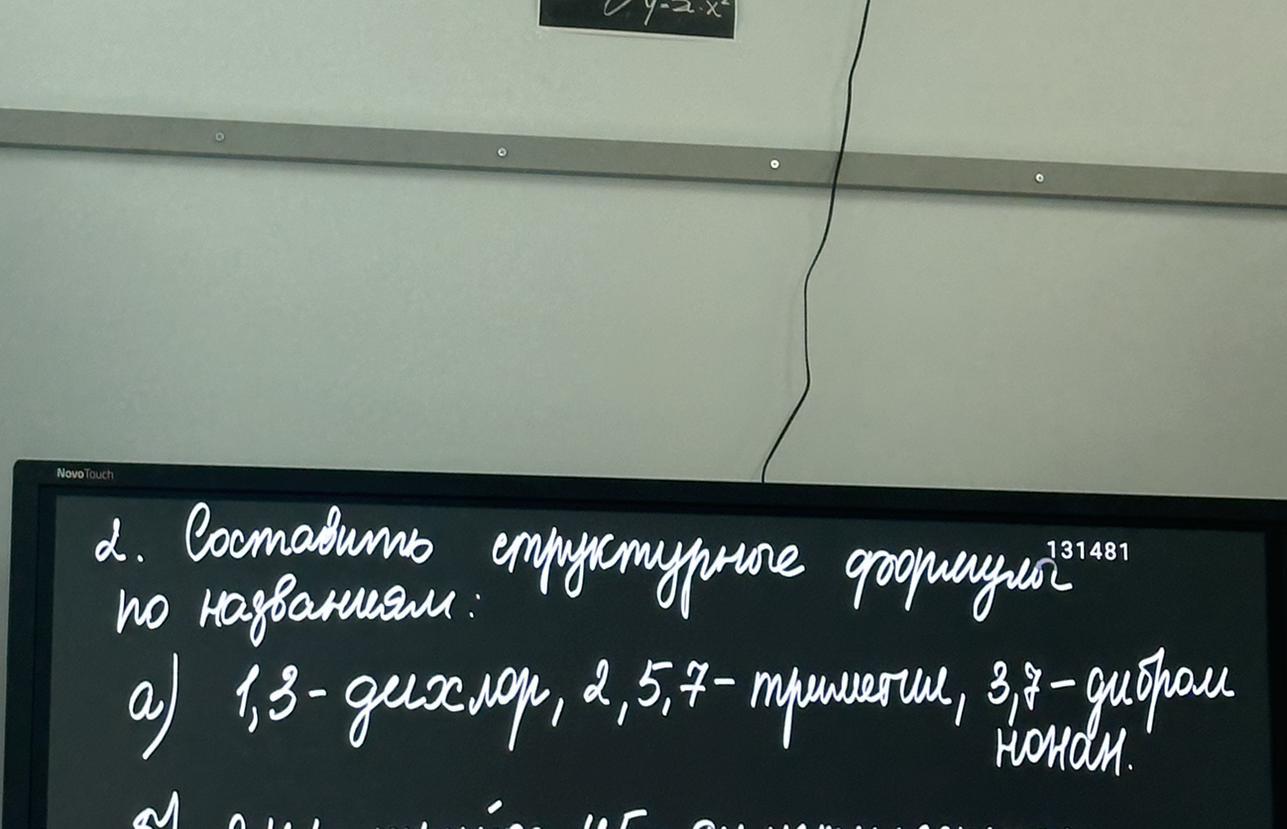 y=2·x²
NovoTouch
2. Составить структурные формулы
131481
по названиям:
а) 1,3-дихлор, 2,5,7-триметил, 3,7-дибром
нонан.